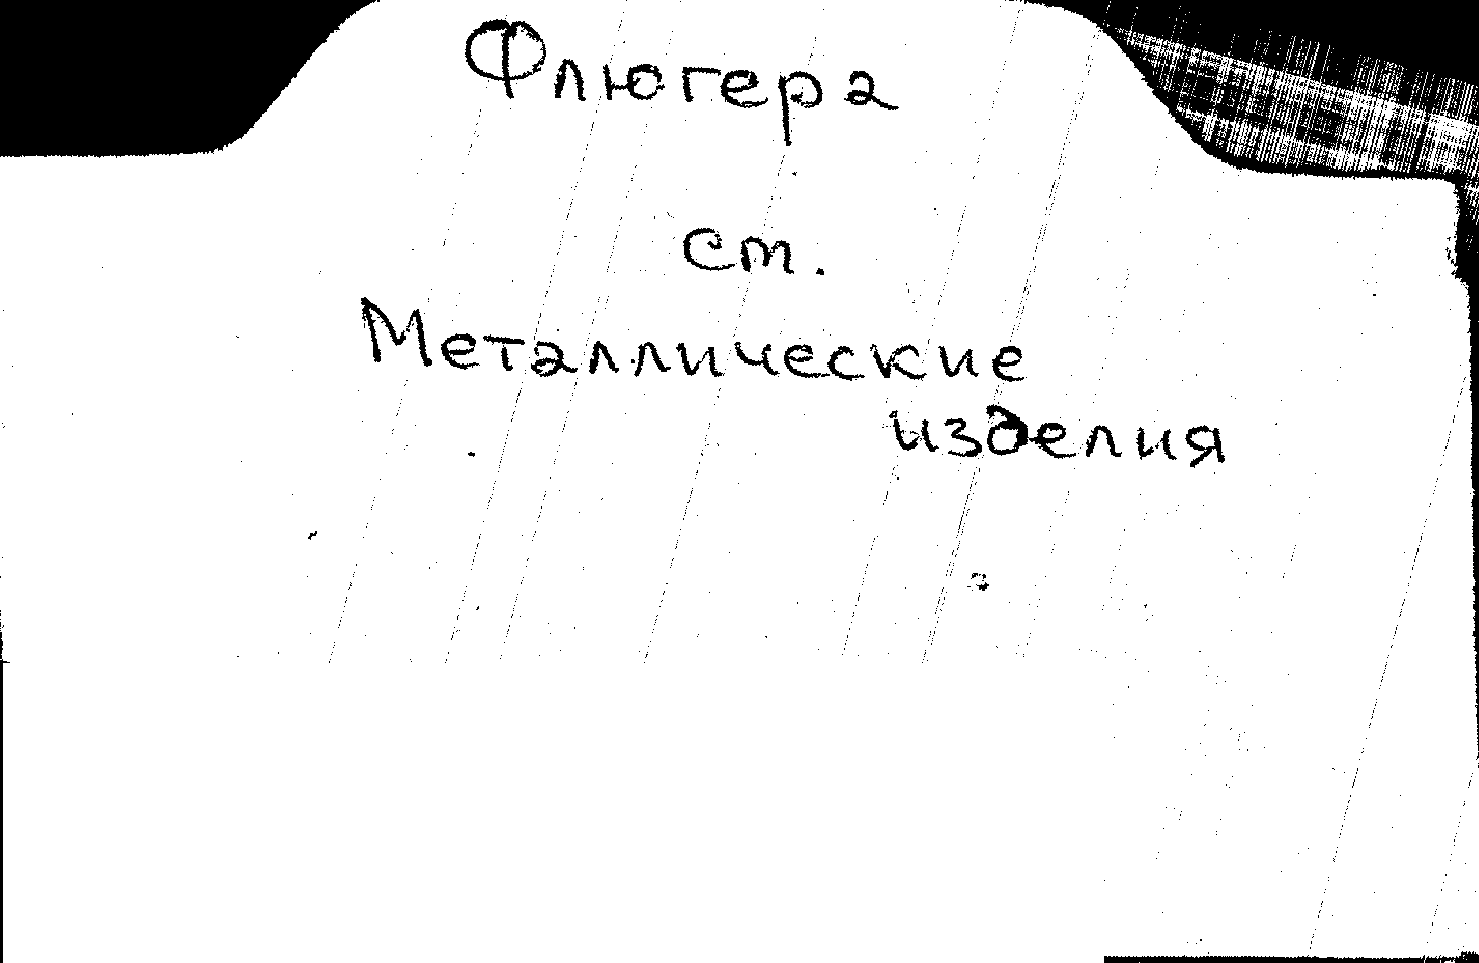 Флюгера
ст.
Металлические
изделия